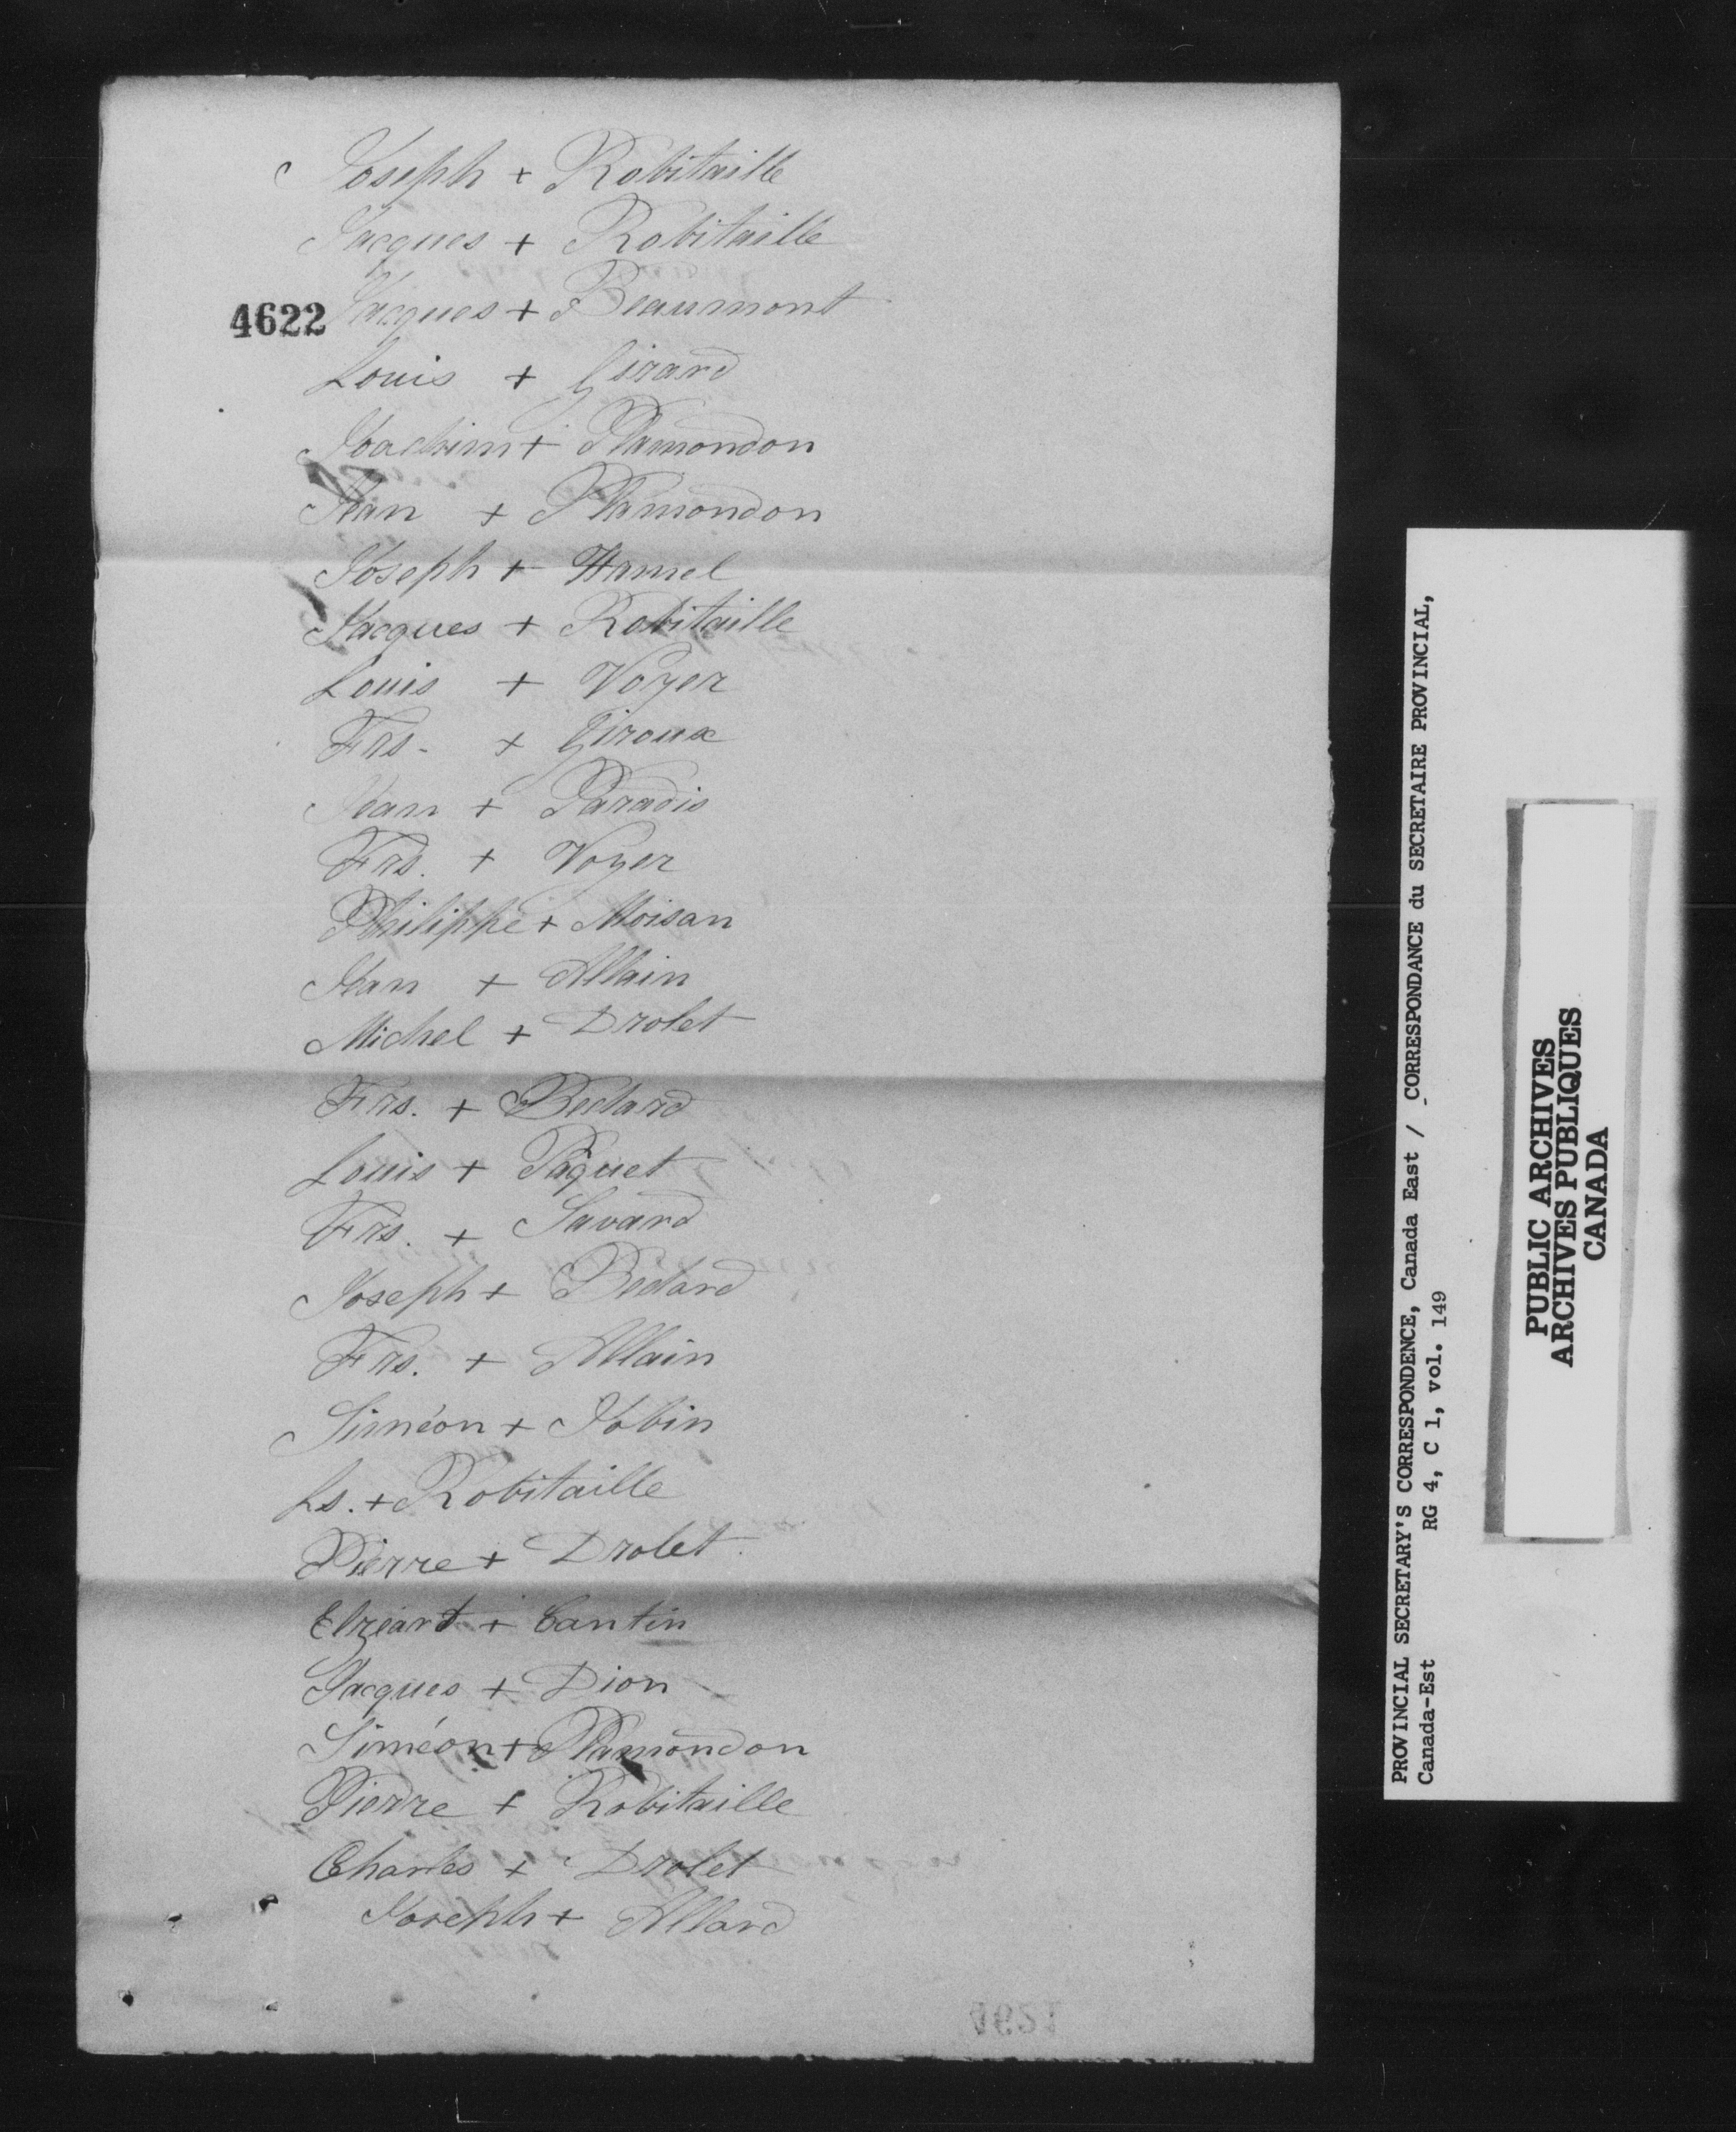 Joseph + Robitaille
Jacques + Robitaille
4622
Jacques + Beaumont
Louis + Girard
Joachim + Plamondon
Jean + Plamondon
Joseph + Hamel
Jacques + Robitaille
Louis + Voyer
Frs. + Giroux
Jean + Paradis
Frs. + Voyer
Philippe + Moisan
Jean + Allain
Michel + Drolet
Frs. + Bedard
Louis + Paquet
Frs. + Savard
Joseph + Bedard
Frs. + Allain
Siméon + Jobin
Ls. + Robitaille
Pierre + Drolet
Elzéard + Cantin
Jacques + Dion
Siméon + Plamondon
Pierre + Robitaille
Charles + Drolet
Joseph + Allard
4621
PROVINCIAL SECRETARY'S CORRESPONDENCE, Canada East / CORRESPONDANCE du SECRETAIRE PROVINCIAL,
Canada-Est RG 4, C 1, vol. 149
PUBLIC ARCHIVES
ARCHIVES PUBLIQUES
CANADA